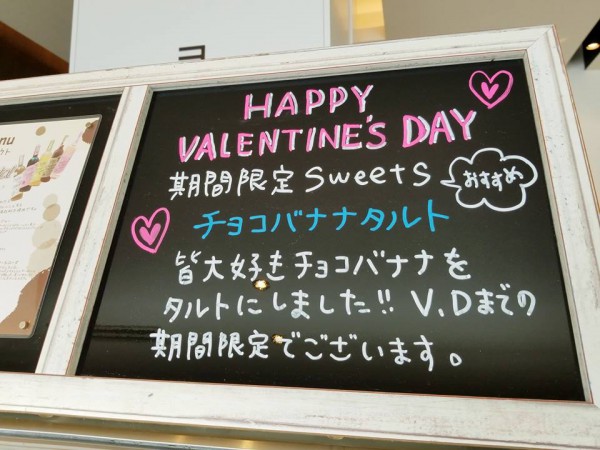 HAPPY
VALENTINE'S DAY
期間限定 sweets
おすすめ
チョコバナナタルト
皆大好きチョコバナナを
タルトにしました!! V.Dまでの
期間限定でございます。
nu